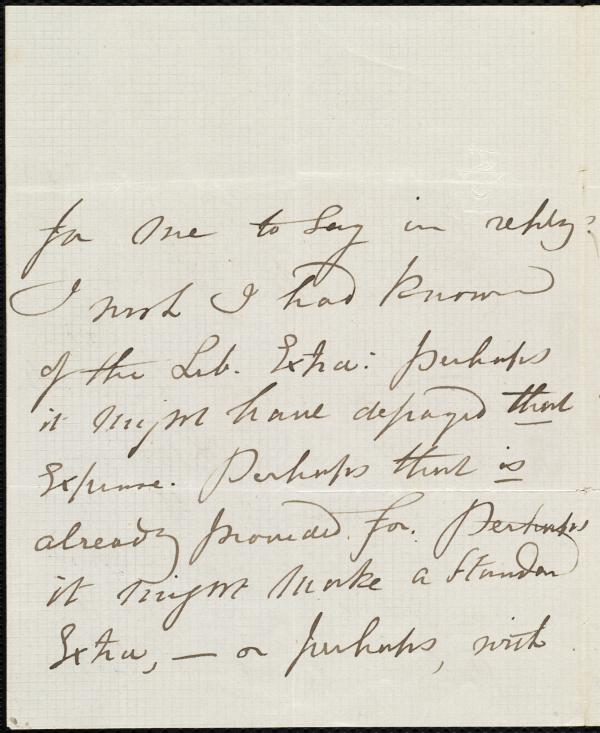 for me to say in reply?
I wish I had known
of the Lib. Extra: perhaps
it might have defrayed that
Expense. Perhaps that is
already provided for. Perhaps
it might make a Standard
Extra, — or perhaps, with